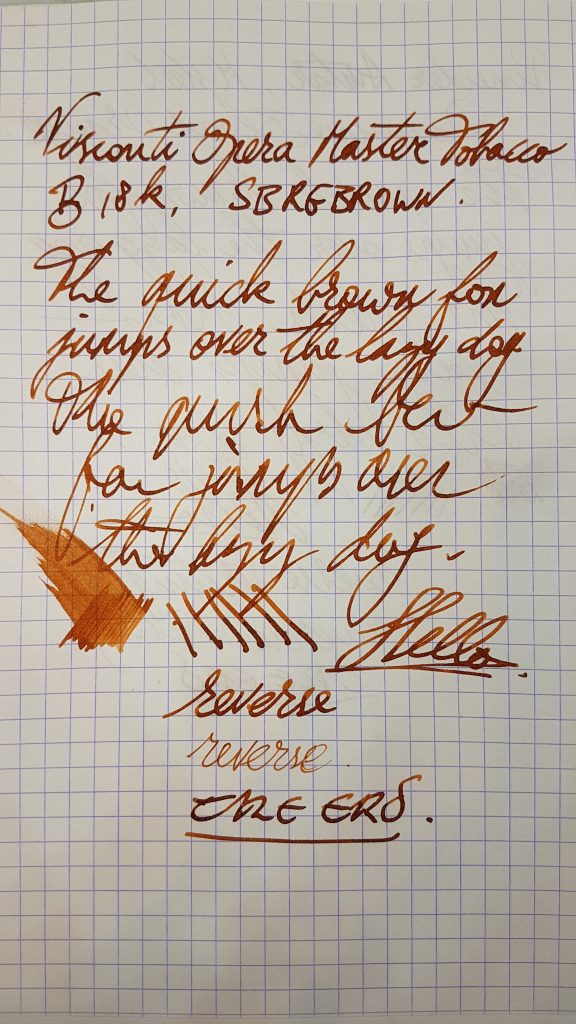 Visconti Opera Master Tobacco
B 18k, SBREBROWN.
The quick brown fox
jumps over the lazy dog
The quick
fox jumps over
the lazy dog.
Hello.
reverse
reverse.